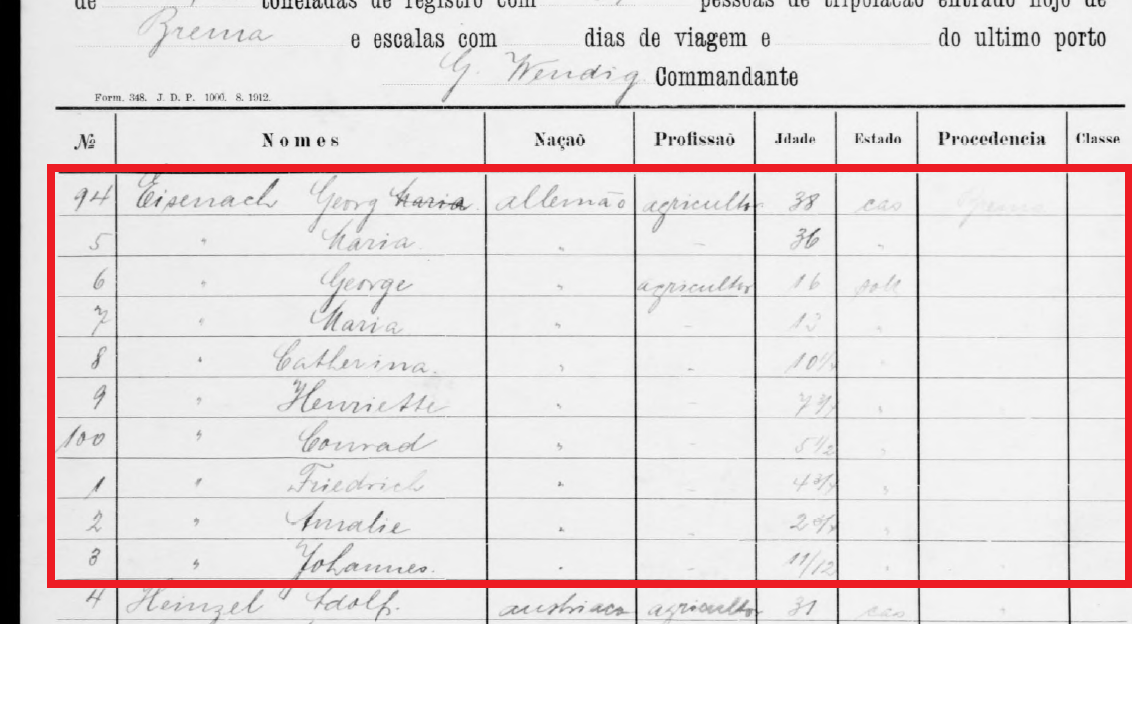 de toneladas de registro com pessoas de tripolacão entrado hoje de
Brema e escalas com dias de viagem e do ultimo porto
G. Wendig Commandante
Form. 348. J. D. P. 1000. 8. 1912.
№ Nomes Naçaõ Profissaõ Idade Estado Procedencia Classe
94 Eisenach Georg Maria allemão agricultor 38 cas Brema
5 " Maria " - 36 "
6 " George " agricultor 16 solt
7 " Maria " - 13 "
8 " Catherina " - 10 "
9 " Henriette " 7 "
100 " Conrad " - 5 1/2 "
1 " Friedrich " - 4 "
2 " Amalie " - 2 "
3 " Johannes " - 11/12 "
4 Heinzel Adolf austriaco agricultor 31 cas "